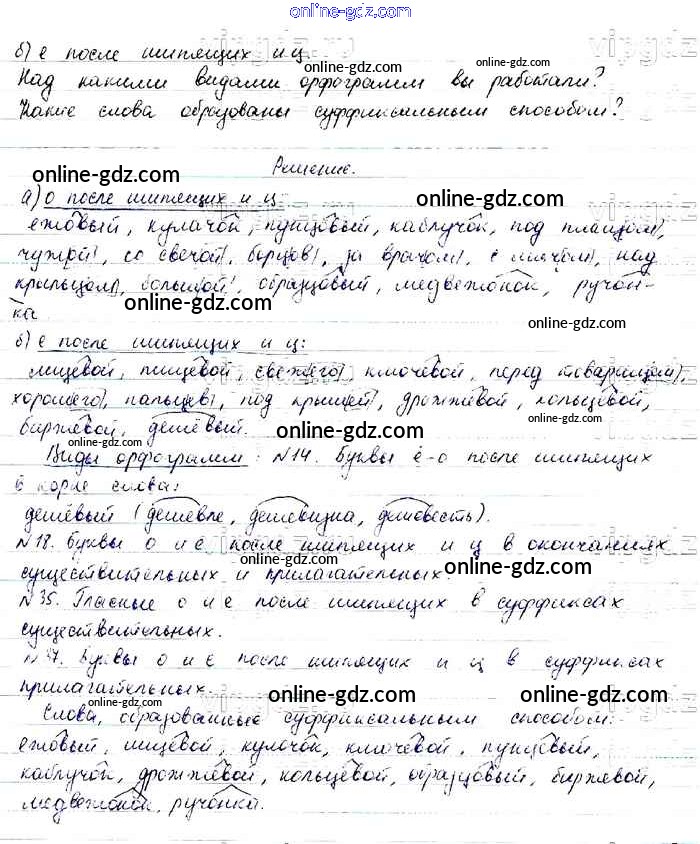 online-gdz.com
б) е после шипящих и ц.
Над какими видами орфограмм вы работали?
Какие слова образованы суффиксальным способом?
Решение.
а) о после шипящих и ц:
ежовый, кулачок, пунцовый, каблучок, под плащом,
чужой, со свечой, борцов, за врачом, с мячом, над
крыльцом, большой, образцовый, медвежонок, ручон-
ка.
б) е после шипящих и ц:
вещевой, пищевой, свежего, ключевой, перед товарищем,
хорошего, пальцев, под крышей, дрожжевой, кольцевой,
биржевой, дешёвый.
Виды орфограмм: №14. Буквы ё-о после шипящих
в корне слова:
дешёвый (дешевле, дешевизна, дешевость).
№18. Буквы о и е после шипящих и ц в окончаниях
существительных и прилагательных.
№35. Гласные о и е после шипящих в суффиксах
существительных.
Буквы о и е после шипящих и ц в суффиксах
прилагательных.
Слова, образованные суффиксальным способом:
ежовый, вещевой, кулачок, ключевой, пунцовый,
каблучок, дрожжевой, кольцевой, образцовый, биржевой,
медвежонок, ручонка.